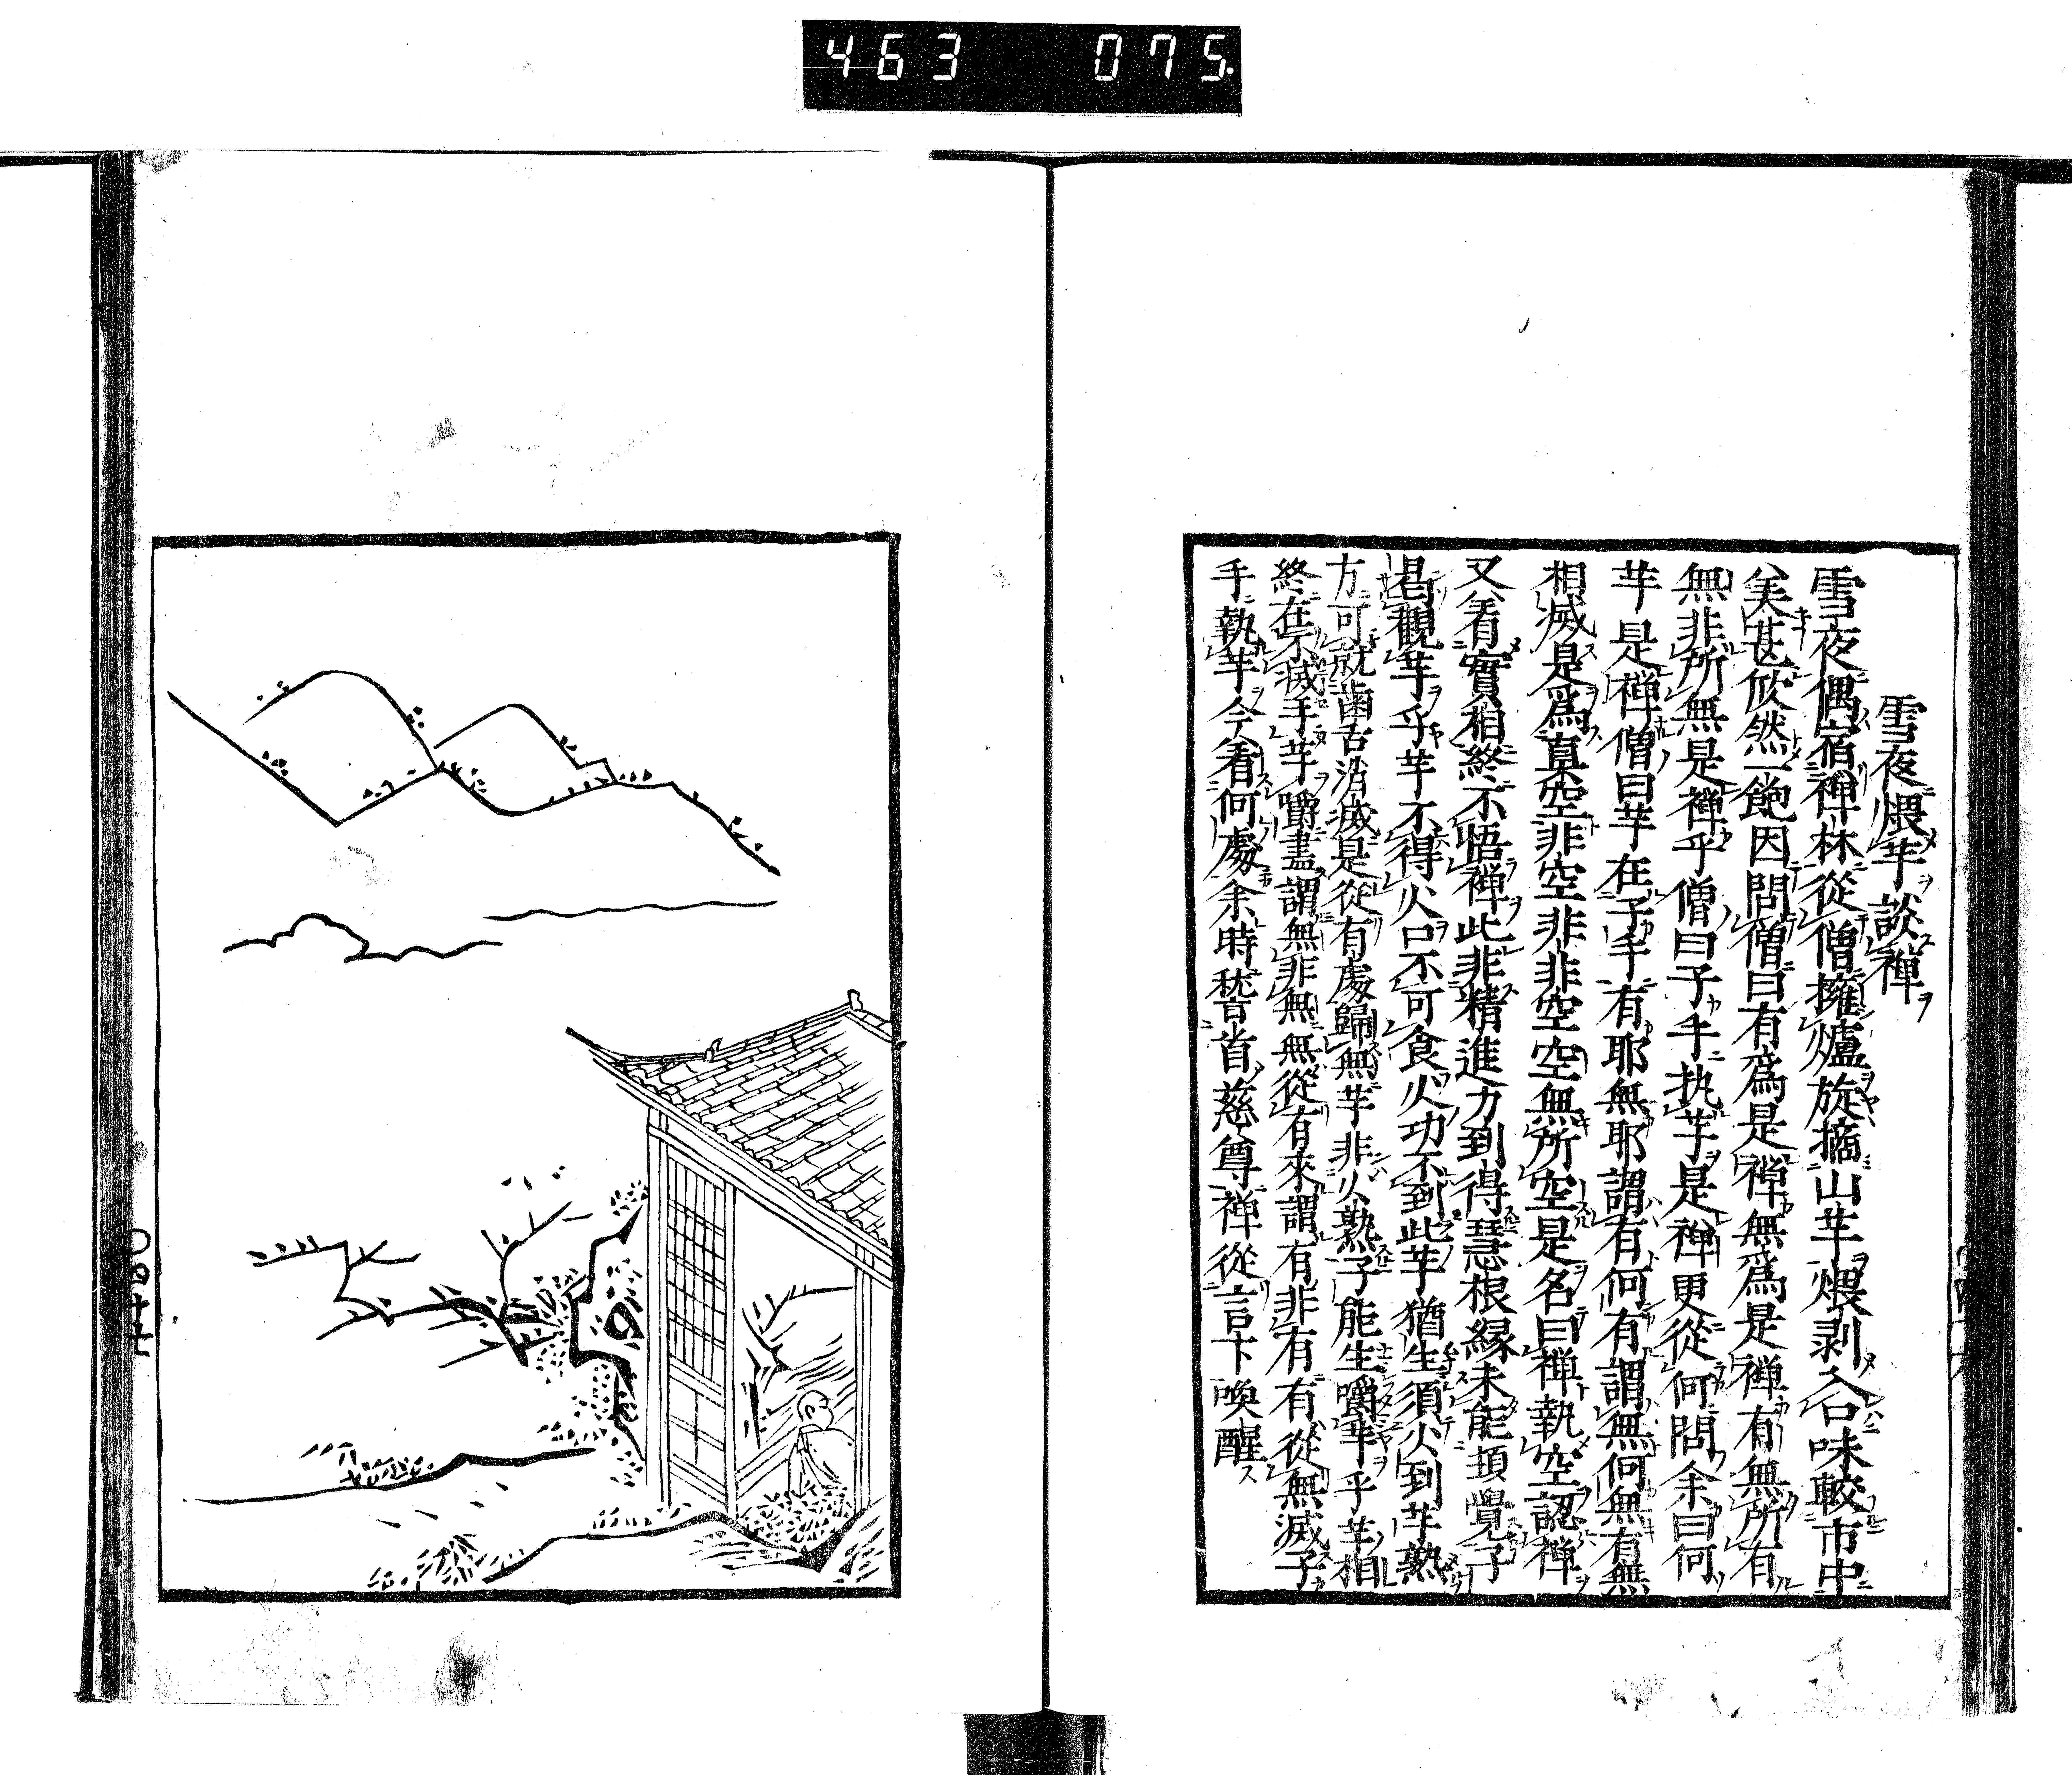 463 075
雪夜煨芋談禪
雪夜偶宿禅林從僧擁爐旋摘山芋煨剥入口味較市中
美甚欣然一飽因問僧曰有爲是禅無爲是禅有無所有
無非所無是禅乎僧曰子手执芋是禅更從何問余曰何
芋是禅僧曰芋在子手有耶無耶謂有何有謂無何無有無
相滅是爲真空非空非非空空無所空是名曰禅執空認禅
又看實相終不悟禅此非精進力到得慧根縁未能頓覺子
曷觀芋乎芋不得火口不可食火功不到此芋猶生須火到芋熟
方可就歯舌消滅是從有處歸無芋非火熟子能生嚼芋乎芋相
終在不滅手芋嚼盡謂無非無無從有來謂有非有有從無滅子
手執芋今看何處余時稽首慈尊禅從言下喚醒